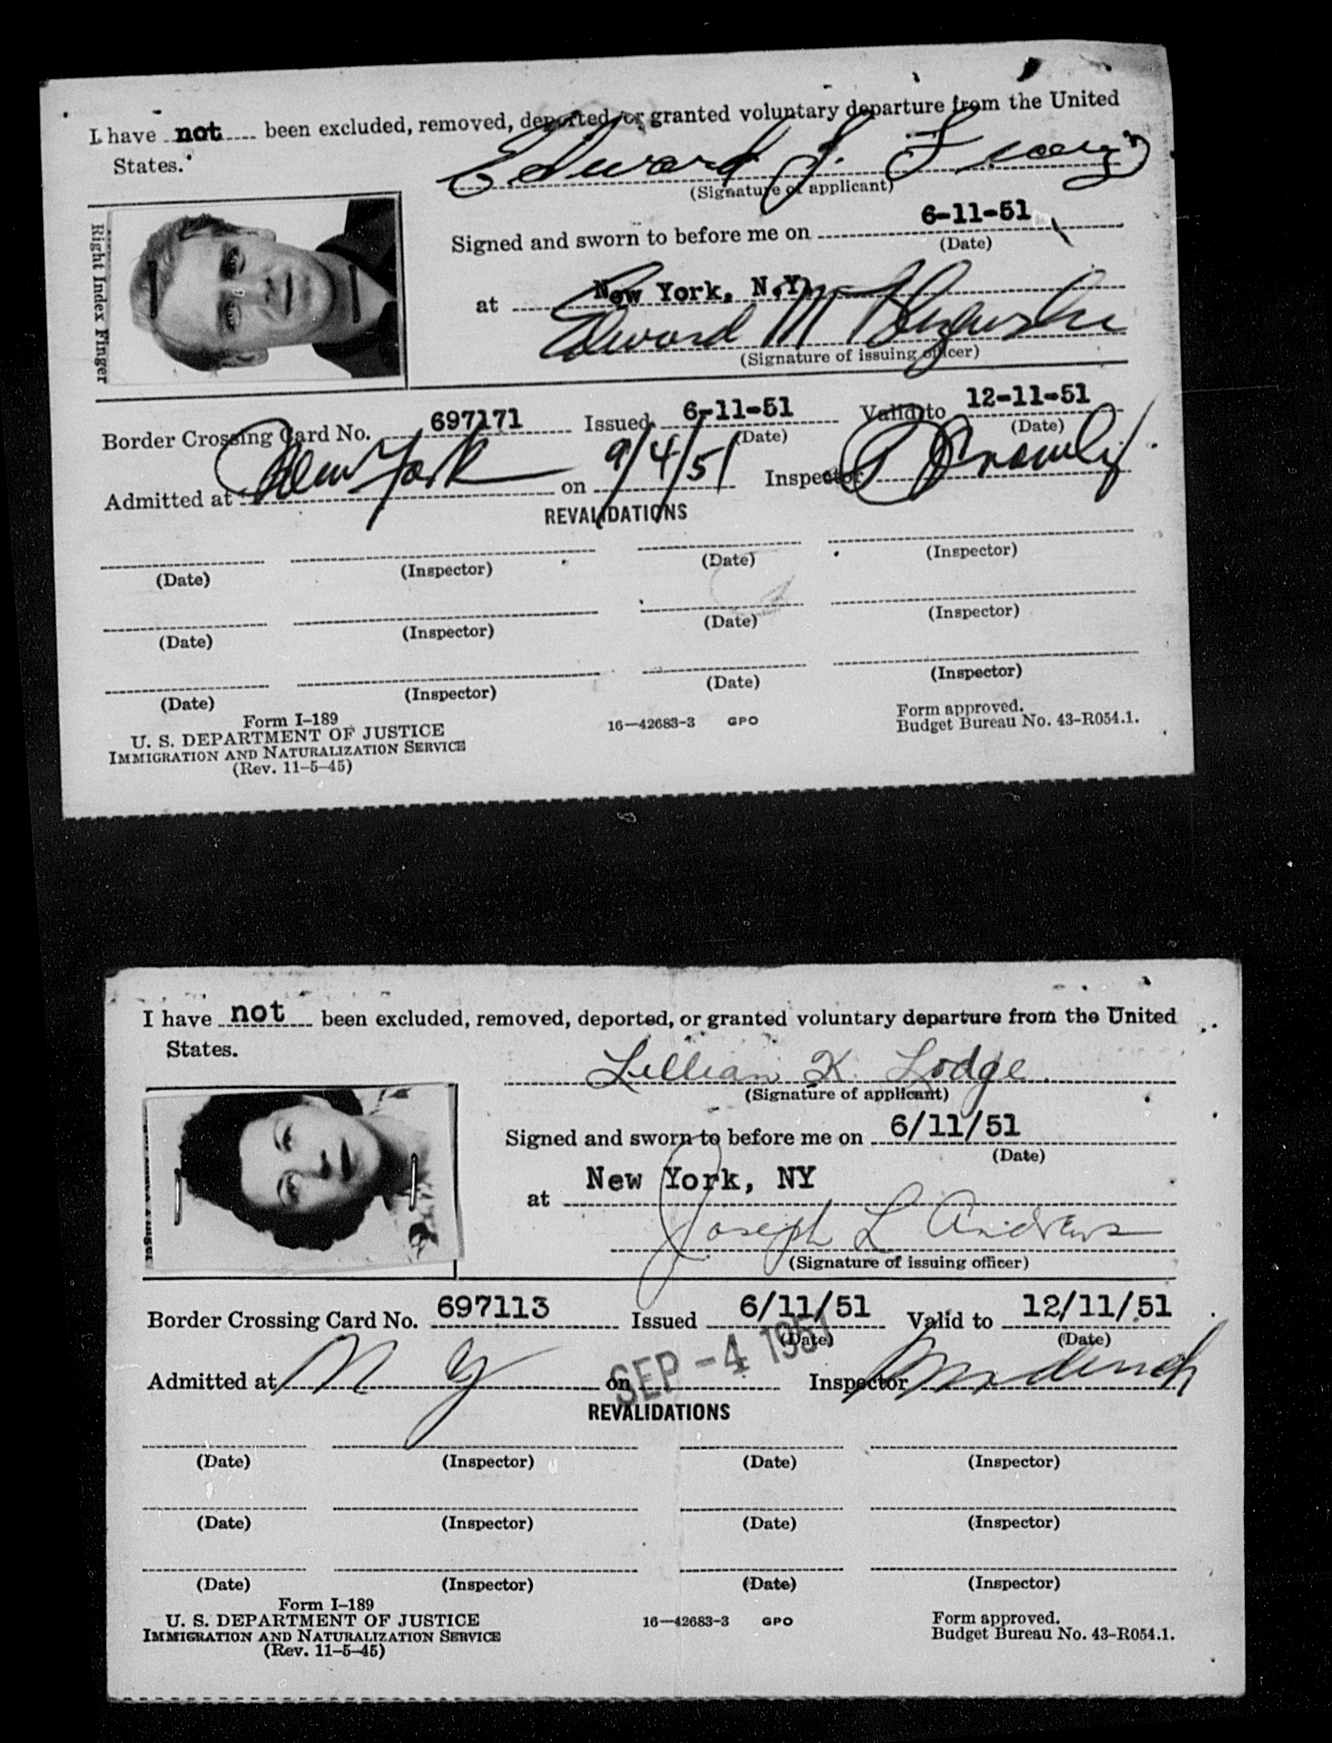 I have not been excluded, removed, deported, or granted voluntary departure from the United
States.
Edward J.
(Signature of applicant)
Right Index Finger
Signed and sworn to before me on 6-11-51
(Date)
at New York, N.Y.
Edward M
(Signature of issuing officer)
Border Crossing Card No. 697171 Issued 6-11-51 Valid to 12-11-51
(Date) (Date)
Admitted at New York on 9/4/51 Inspector
REVALIDATIONS
(Date) (Inspector) (Date) (Inspector)
(Date) (Inspector) (Date) (Inspector)
(Date) (Inspector) (Date) (Inspector)
Form I-189
U. S. DEPARTMENT OF JUSTICE
IMMIGRATION AND NATURALIZATION SERVICE
(Rev. 11-5-45)
16—42683-3 GPO
Form approved.
Budget Bureau No. 43-R054.1.
I have not been excluded, removed, deported, or granted voluntary departure from the United
States.
Lillian K. Lodge
(Signature of applicant)
Signed and sworn to before me on 6/11/51
(Date)
at New York, NY
Joseph L Andrews
(Signature of issuing officer)
Border Crossing Card No. 697113 Issued 6/11/51 Valid to 12/11/51
(Date) (Date)
Admitted at N Y on SEP -4 1951 Inspector
REVALIDATIONS
(Date) (Inspector) (Date) (Inspector)
(Date) (Inspector) (Date) (Inspector)
(Date) (Inspector) (Date) (Inspector)
Form I-189
U. S. DEPARTMENT OF JUSTICE
IMMIGRATION AND NATURALIZATION SERVICE
(Rev. 11-5-45)
16—42683-3 GPO
Form approved.
Budget Bureau No. 43-R054.1.